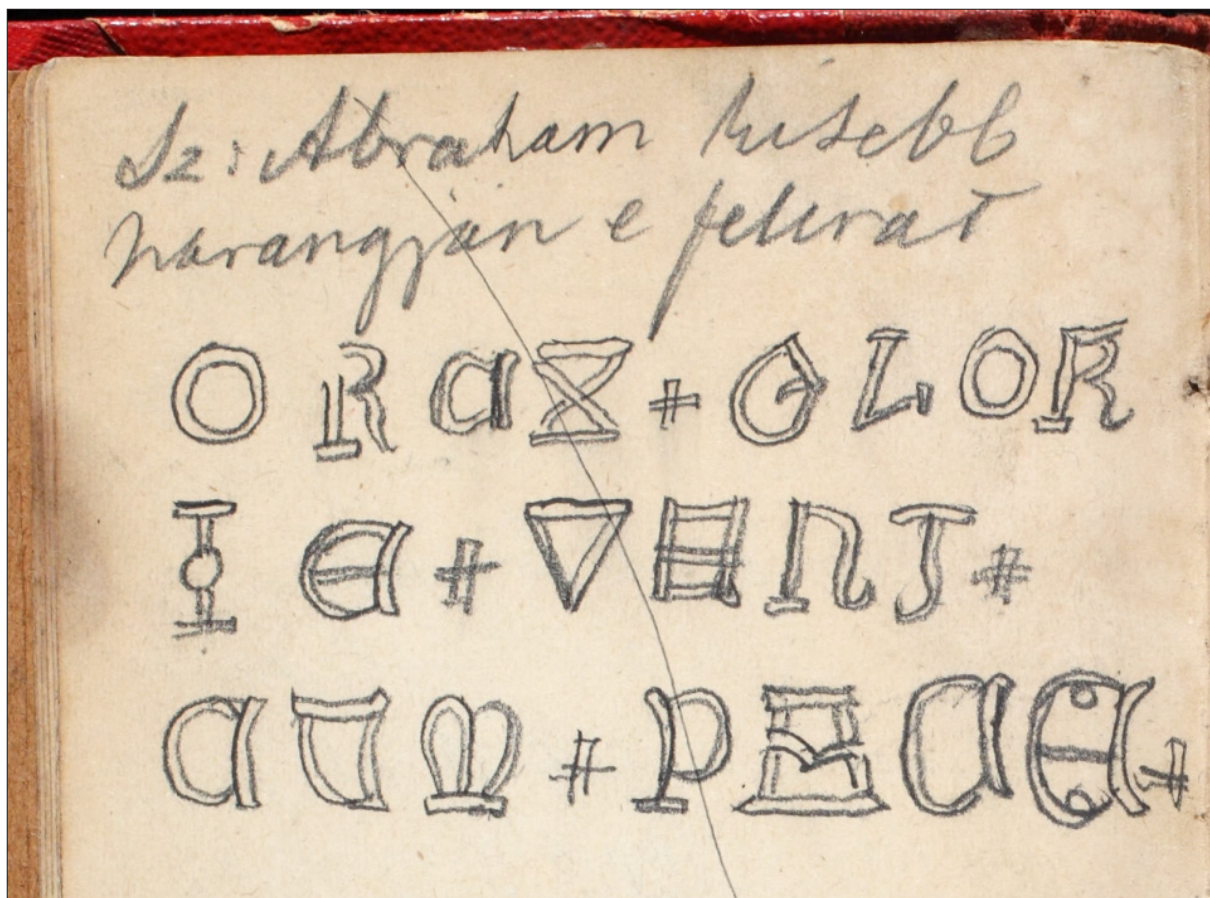 Sz: Abraham kisebb
harangján e felirat
O REX + GLOR
IE + VENI +
CUM + PACE +